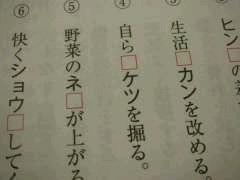 ヒン□の
③
生活□カンを改める。
④
自ら□ケツを掘る。
⑤
野菜のネ□が上がる
⑥
快くショウ□して